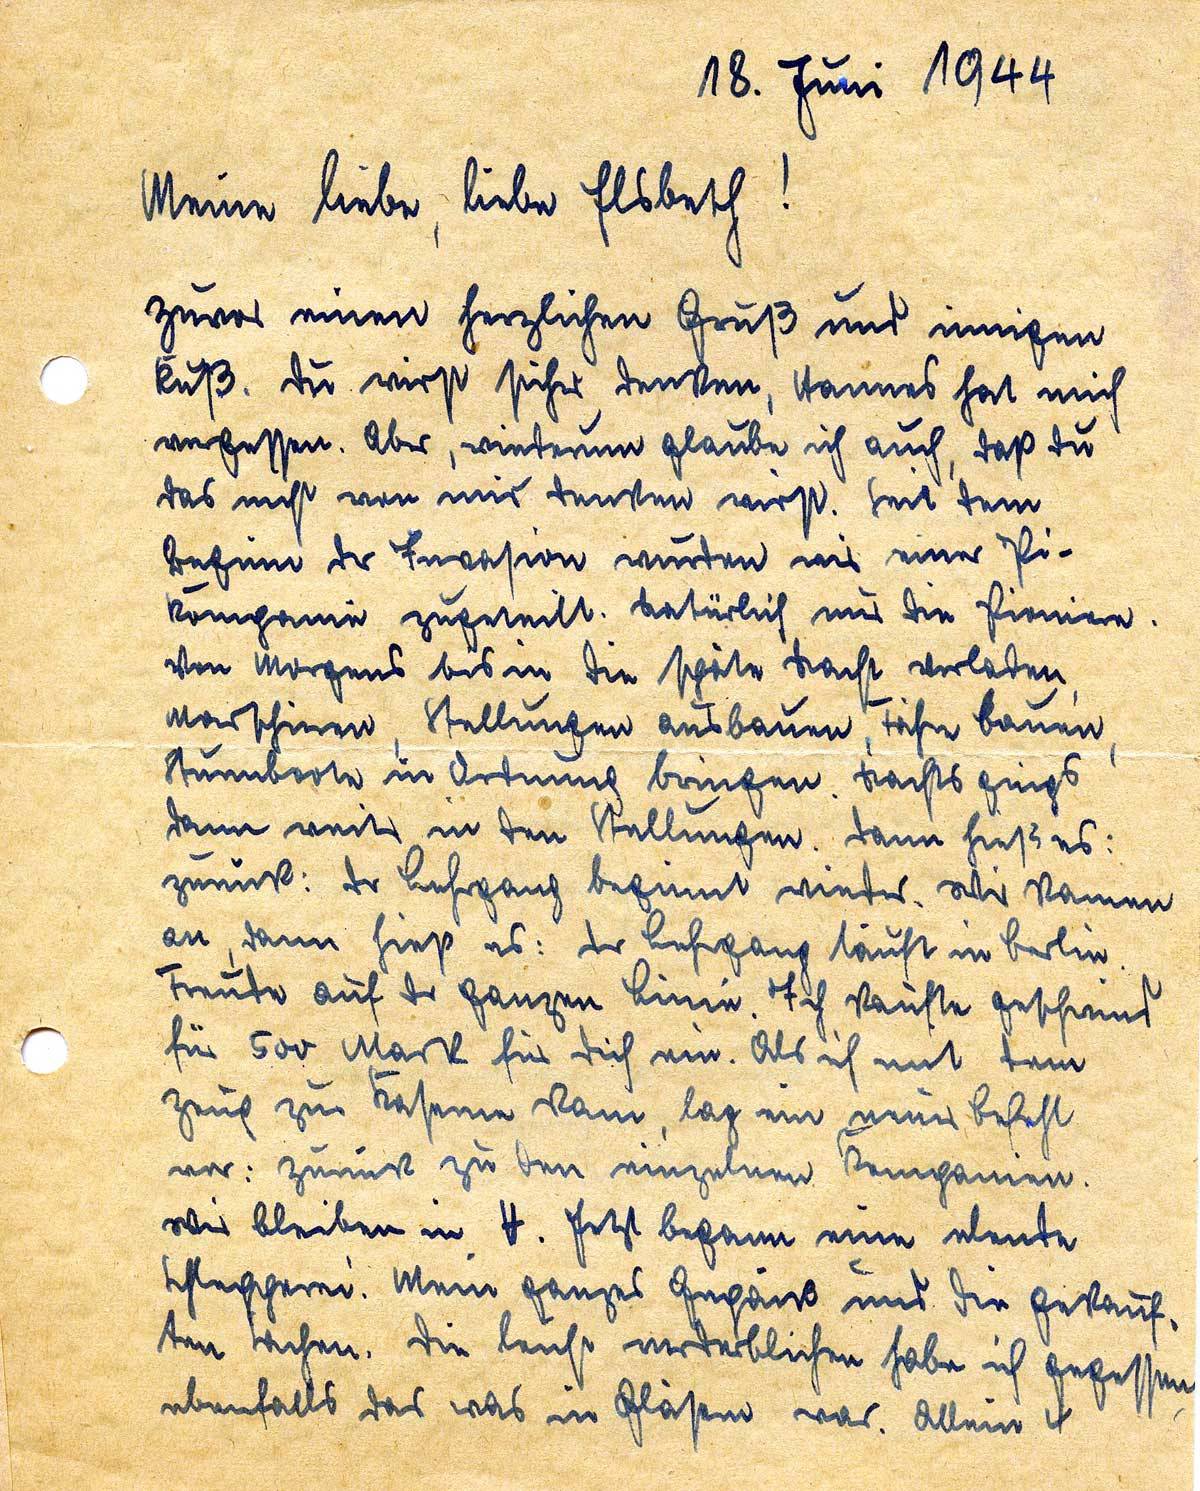 18. Juni 1944
Meine liebe, liebe Elsbeth!
zuvor einen herzlichen Gruß und innigen
Kuß. Du wirst sicher denken, Hannes hat mich
vergessen. Aber, wiederum glaube ich auch, daß du
das nicht von mir denken wirst. Seit dem
Beginn der Invasion wurden wir einer Pi-
Kompanie zugeteilt. Natürlich nur die Pioniere.
Von Morgens bis in die späte Nacht verladen,
Marschieren, Stellungen ausbauen, Fähre bauen,
Sturmboote in Ordnung bringen. Nachts gings
dann weiter in den Stellungen. Dann hieß es:
zurück: der Lehrgang beginnt wieder. Wir kamen
an, dann hieß es: der Lehrgang läuft in Berlin.
Freude auf der ganzen Linie. Ich kaufte geschwind
für 500 Mark für dich ein. Als ich mit dem
Zeug zur Kaserne kam, lag ein neuer Befehl
vor: zurück zu den einzelnen Kompanien.
Wir bleiben in. Jetzt begann eine elende
Schlepperei. Mein ganzes Gepäck und die gekauf-
ten Sachen. Die leicht verderblichen habe ich gegessen,
ebenfalls das was in Gläsern war. Allein 4